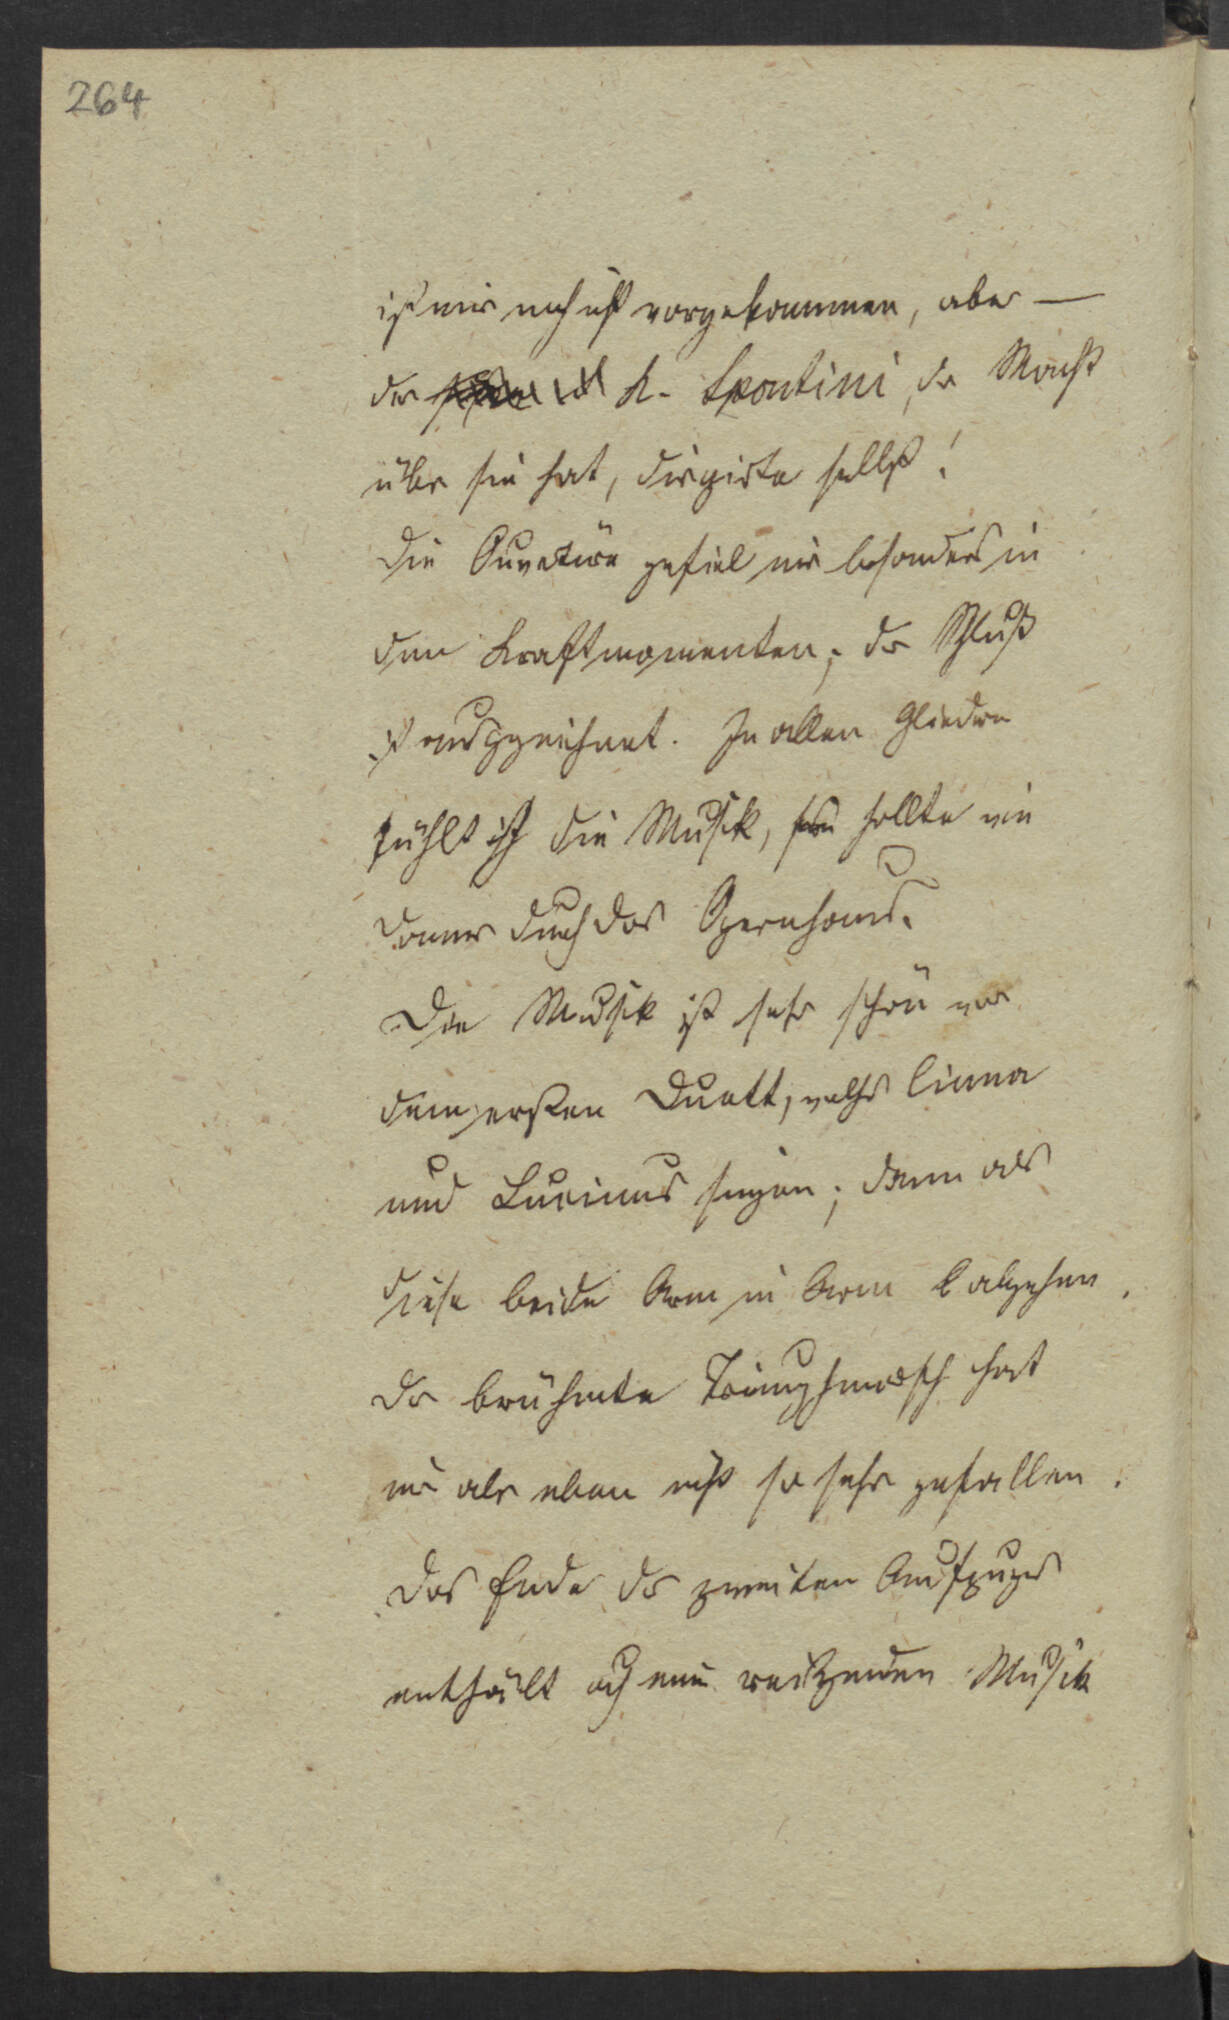 264
ist mir noch nicht vorgekommen, aber —
der H. Spontini, der Macht
über sie hat, dirigirte selbst!
Die Ouvertüre gefiel mir besonders in
den Kraftmomenten; der Schluß
ist ausgezeichnet. In allen Gliedern
fühlt ich die Musik, sie hallte wie
Donner durch das Opernhaus.
Die Musik ist sehr schön von
dem ersten Duett, welches Cinna
und Lucinius singen; dann als
diese beide Arm in Arm abgehen.
Der berühmte Triumphmarsch hat
mir aber eben nicht so sehr gefallen.
Das Ende des zweiten Aufzuges
enthält auch eine reitzenden Musik